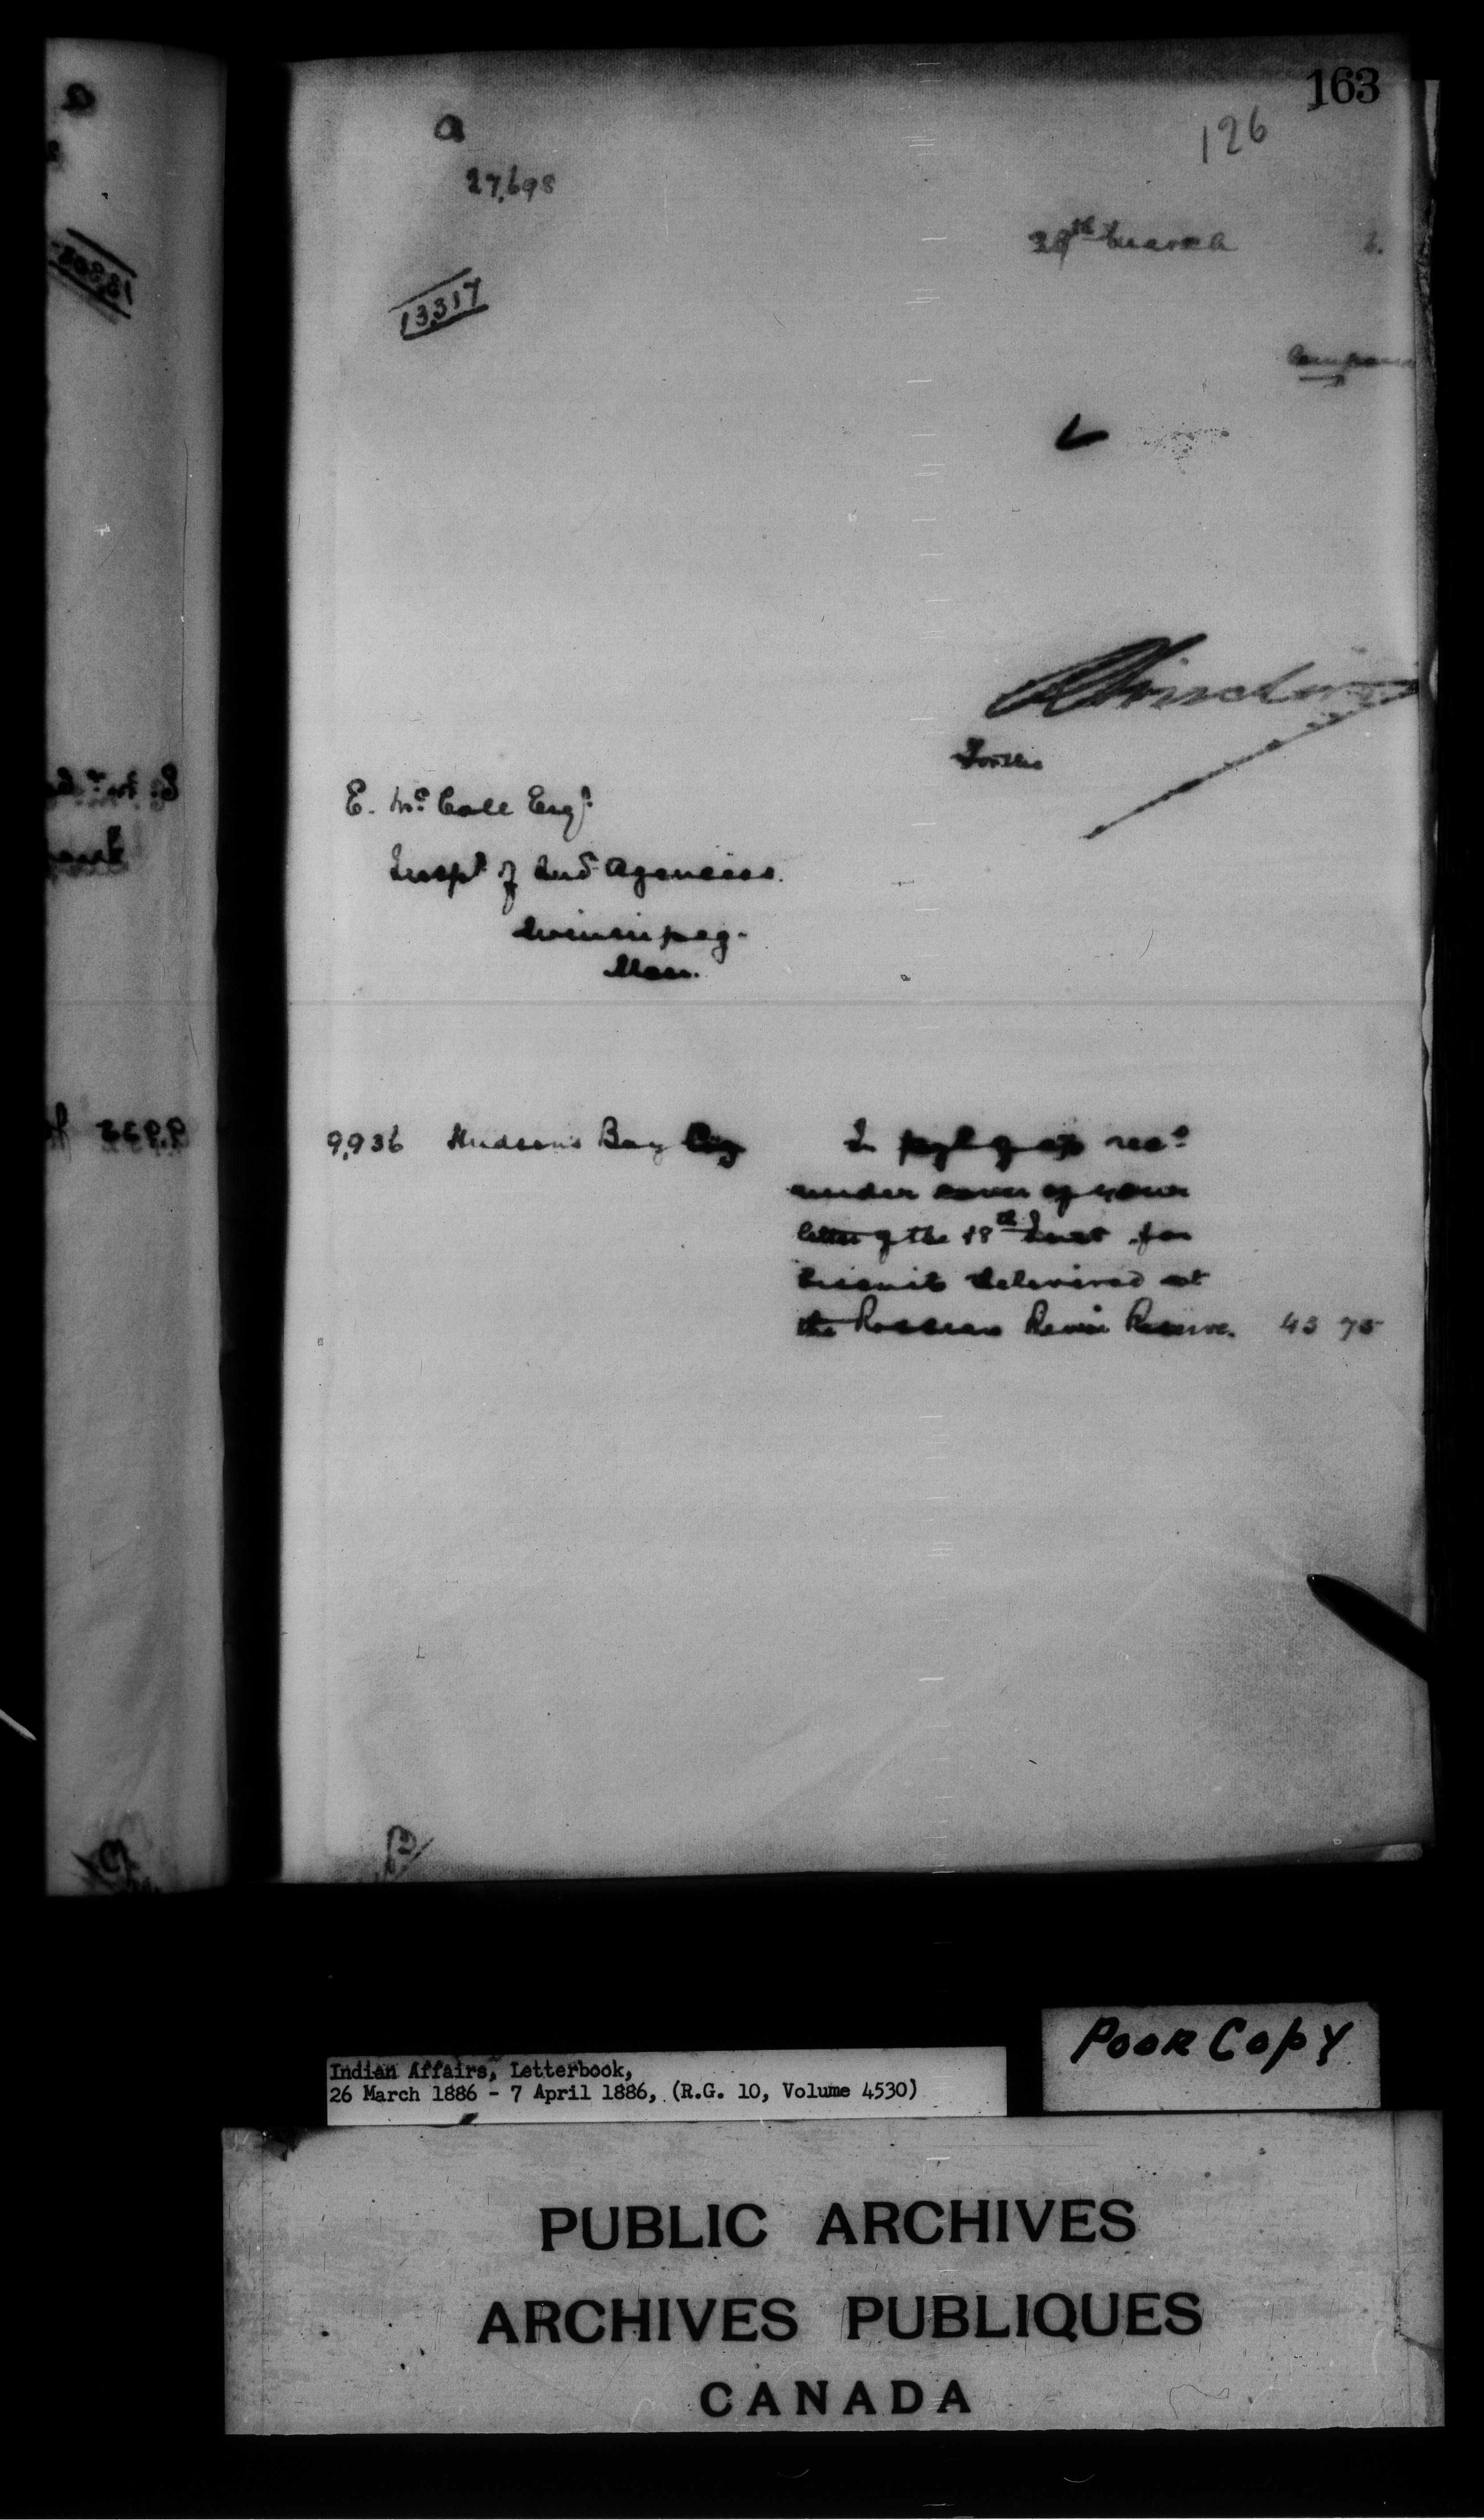 163
126
a
27,698
29th March 6.
13317
E. McColl Esqr.
Inspr. of Ind. Agencies.
Winnipeg.
Man.
9,936 Hudson's Bay Coy In payt of a/c recd
under cover of your
letter of the 18th Inst. for
biscuits delivered at
the Roseau River Reserve. 43 75
Poor Copy
Indian Affairs, Letterbook,
26 March 1886 - 7 April 1886, (R.G. 10, Volume 4530)
PUBLIC ARCHIVES
ARCHIVES PUBLIQUES
CANADA